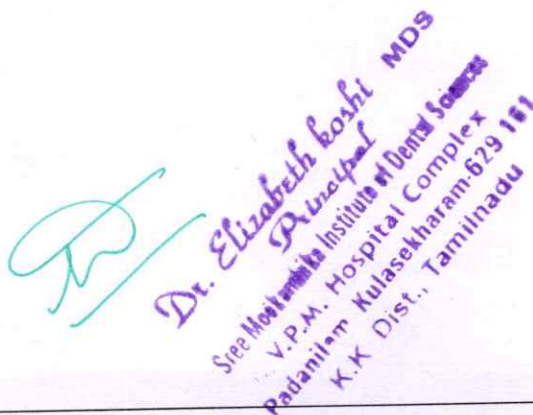 Dr. Elizabeth koshi MDS
Principal
Sree Mookambika Institute of Dental Sciences
V.P.M. Hospital Complex
Padanilam Kulasekharam-629 161
K.K Dist., Tamilnadu